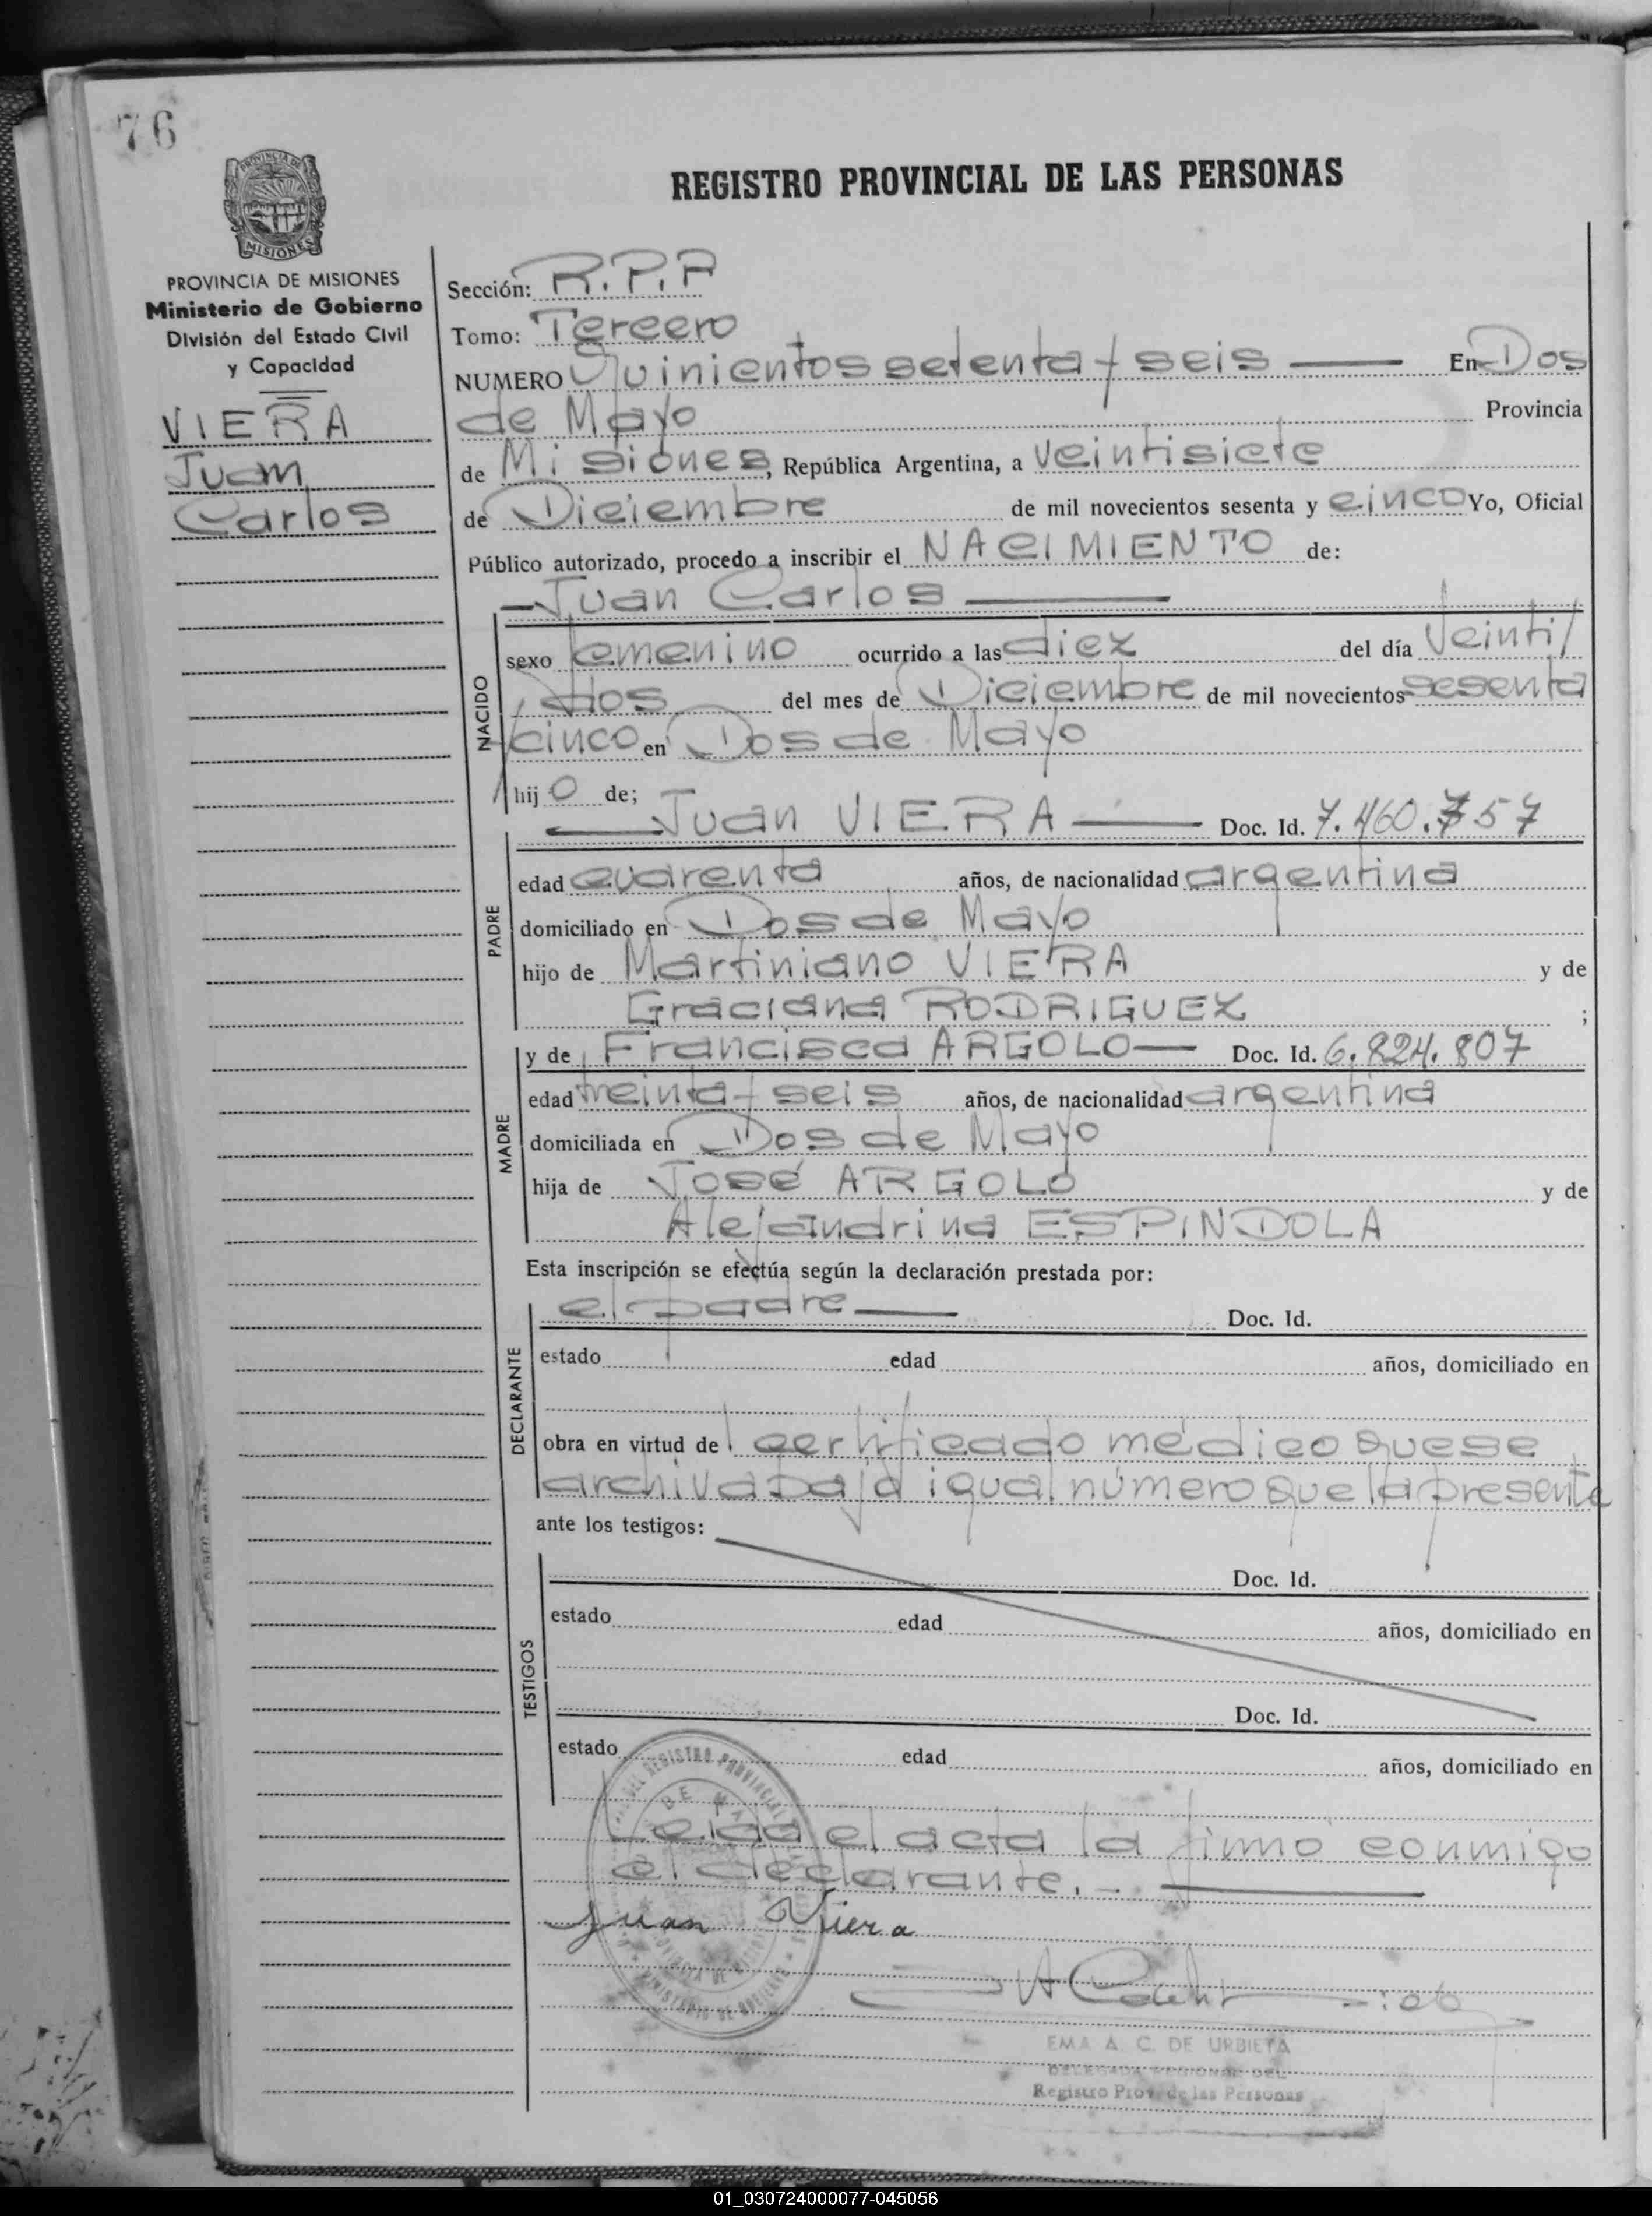 76
PROVINCIA DE
MISIONES
REGISTRO PROVINCIAL DE LAS PERSONAS
PROVINCIA DE MISIONES
Ministerio de Gobierno
División del Estado Civil
y Capacidad
VIERA
Juan
Carlos
Sección: R.P.P
Tomo: Tercero
NUMERO Quinientos setenta y seis — En Dos
de Mayo Provincia
de Misiones, República Argentina, a veintisiete
de Diciembre de mil novecientos sesenta y cinco Yo, Oficial
Público autorizado, procedo a inscribir el NACIMIENTO de:
— Juan Carlos —
NACIDO
sexo femenino ocurrido a las diez del día veinti
dos del mes de Diciembre de mil novecientos sesenta
y cinco en Dos de Mayo
hijo de;
— Juan VIERA — Doc. Id. 7.460.757
PADRE
edad cuarenta años, de nacionalidad argentina
domiciliado en Dos de Mayo
hijo de Martiniano VIERA y de
Graciana RODRIGUEZ ;
y de Francisca ARGOLO — Doc. Id. 6.824.807
MADRE
edad treinta y seis años, de nacionalidad argentina
domiciliada en Dos de Mayo
hija de José ARGOLO y de
Alejandrina ESPINDOLA
Esta inscripción se efectúa según la declaración prestada por:
el padre — Doc. Id.
DECLARANTE
estado edad años, domiciliado en
obra en virtud del certificado médico que se
archiva bajo igual número que la presente
ante los testigos:
Doc. Id.
TESTIGOS
estado edad años, domiciliado en
Doc. Id.
estado edad años, domiciliado en
Leida el acta la firmó conmigo
el declarante. —
Juan Viera
EMA A. C. DE URBIETA
DELEGADA REGIONAL DEL
Registro Prov. de las Personas
01_030724000077-045056